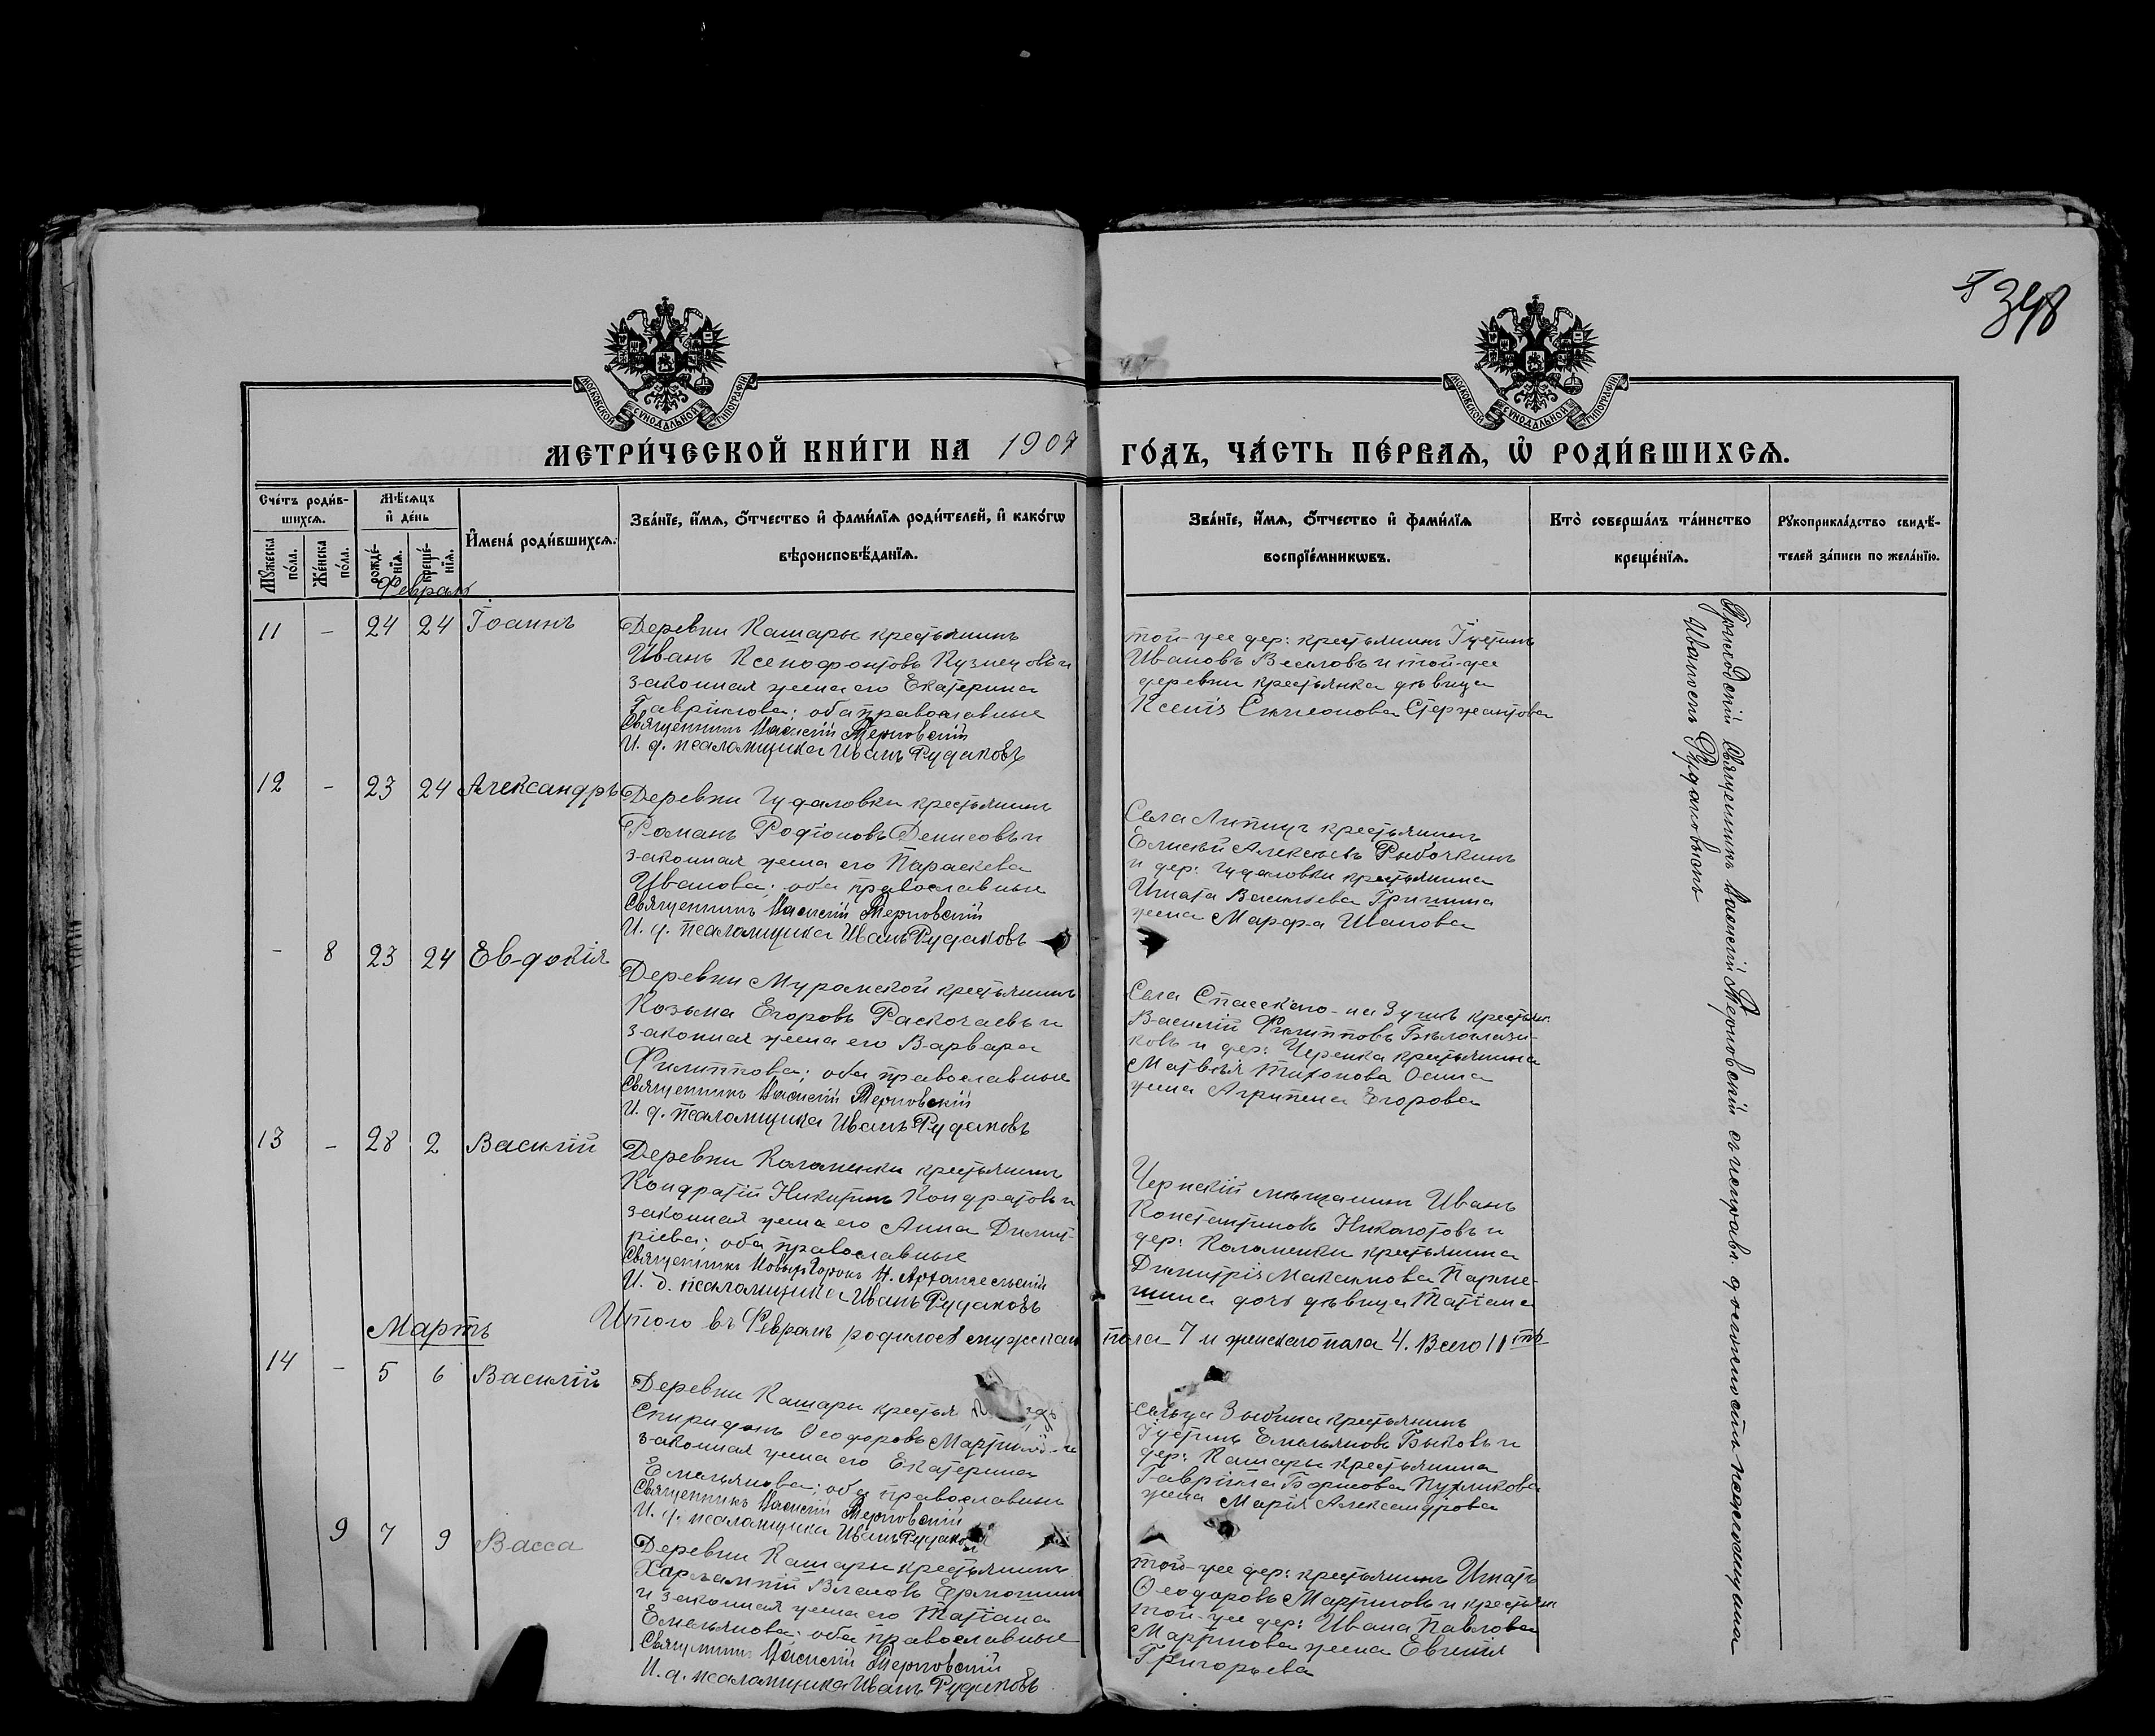 348
МОСКОВСКОЙ СѴНОДАЛЬНОЙ ТИПОГРАФІИ
МОСКОВСКОЙ СѴНОДАЛЬНОЙ ТИПОГРАФІИ
МЕТРИ́ЧЕСКОЙ КНИ́ГИ НА 1907 ГО́ДЪ, ЧА́СТЬ ПЕ́РВАѦ, Ѽ РОДИ́ВШИХСѦ.
Сче́тъ роди́в-
шихсѧ.
Мꙋ́жеска по́ла.
Же́нска по́ла.
Мѣ́сѧцъ и де́нь
рожде́-нїѧ.
креще́-нїѧ.
И҆мена̀ роди́вшихсѧ.
Зва́нїе, и҆́мѧ, ѻ҆́тчество и҆ фами́лїѧ роди́телей, и҆ како́гѡ
вѣроисповѣ́данїѧ.
Зва́нїе, и҆́мѧ, ѻ҆́тчество и҆ фами́лїѧ
воспрїе́мникѡвъ.
Кто̀ соверша́лъ та́инство
креще́нїѧ.
Рꙋкоприкла́дство свидѣ́-
телей за́писи по жела́нїю.
Февраль
11 - 24 24 Іоаннъ
Деревни Кашары крестьянинъ
Иванъ Ксенофонтовъ Кузнецовъ и
законная жена его Екатерина
Гавріилова; оба православные
Священникъ Василій Терновскій
И. д. псаломщика Иванъ Рудаковъ
той-же дер: крестьянинъ Іустинъ
Ивановъ Веселовъ и той-же
деревни крестьянка дѣвица
Ксенія Симеонова Сержантова
Приходскій Священникъ Василій Терновскій съ исправ. должность псаломщика
Иваномъ Рудаковымъ
12 - 23 24 Александръ
Деревни Гудаловки крестьянинъ
Романъ Родіоновъ Денисовъ и
законная жена его Параскева
Иванова; оба православные
Священникъ Василій Терновскій
И. д. псаломщика Иванъ Рудаковъ
Села Липицъ крестьянинъ
Елисей Алексѣевъ Рыбочкинъ
и дер: Гудаловки крестьянина
Игната Васильева Гришина
жена Марфа Иванова
- 8 23 24 Евдокія
Деревни Муромской крестьянинъ
Козьма Егоровъ Раскочаевъ и
законная жена его Варвара
Филиппова; оба православные
Священникъ Василій Терновскій
И. д. псаломщика Иванъ Рудаковъ
Села Спасскаго-на Зушѣ крестьян.
Василій Филипповъ Бѣлоглази-
ковъ и дер: Черенка крестьянина
Матвѣя Тихонова Осина
жена Агрипина Егорова
13 - 28 2 Василій
Деревни Коломенки крестьянинъ
Кондратій Никитинъ Кондратовъ и
законная жена его Анна Димит-
ріева; оба православные
Священникъ Н. Архангельскій
И. д. псаломщика Иванъ Рудаковъ
Чернскій мѣщанинъ Иванъ
Константиновъ Николотовъ и
дер: Коломенки крестьянина
Димитрія Максимова Парме-
шина дочь дѣвица Татіана
Итого въ Февралѣ родилось мужскаго пола 7 и женскаго пола 4. Всего 11 ть
Мартъ
14 - 5 6 Василій
Деревни Кашары крестья
Спиридонъ Ѳеодоровъ Мартиновъ и
законная жена его Екатерина
Емельянова; оба православные
Священникъ Василій Терновскій
И. д. псаломщика Иванъ Рудаковъ
Сельца Зыбина крестьянинъ
Іустинъ Емельяновъ Быковъ и
дер: Кашары крестьянина
Гавріила Борисова Пузликова
жена Марія Александрова
9 7 9 Васса
Деревни Кашары крестьянинъ
Харлампій Власовъ Ермошинъ
и законная жена его Татіана
Емельянова; оба православные
Священникъ Василій Терновскій
И. д. псаломщика Иванъ Рудаковъ
той-же дер: крестьянинъ Игнатъ
Ѳеодоровъ Мартиновъ и крестьян.
той-же дер: Ивана Павлова
Мартинова жена Евгенія
Григорьева